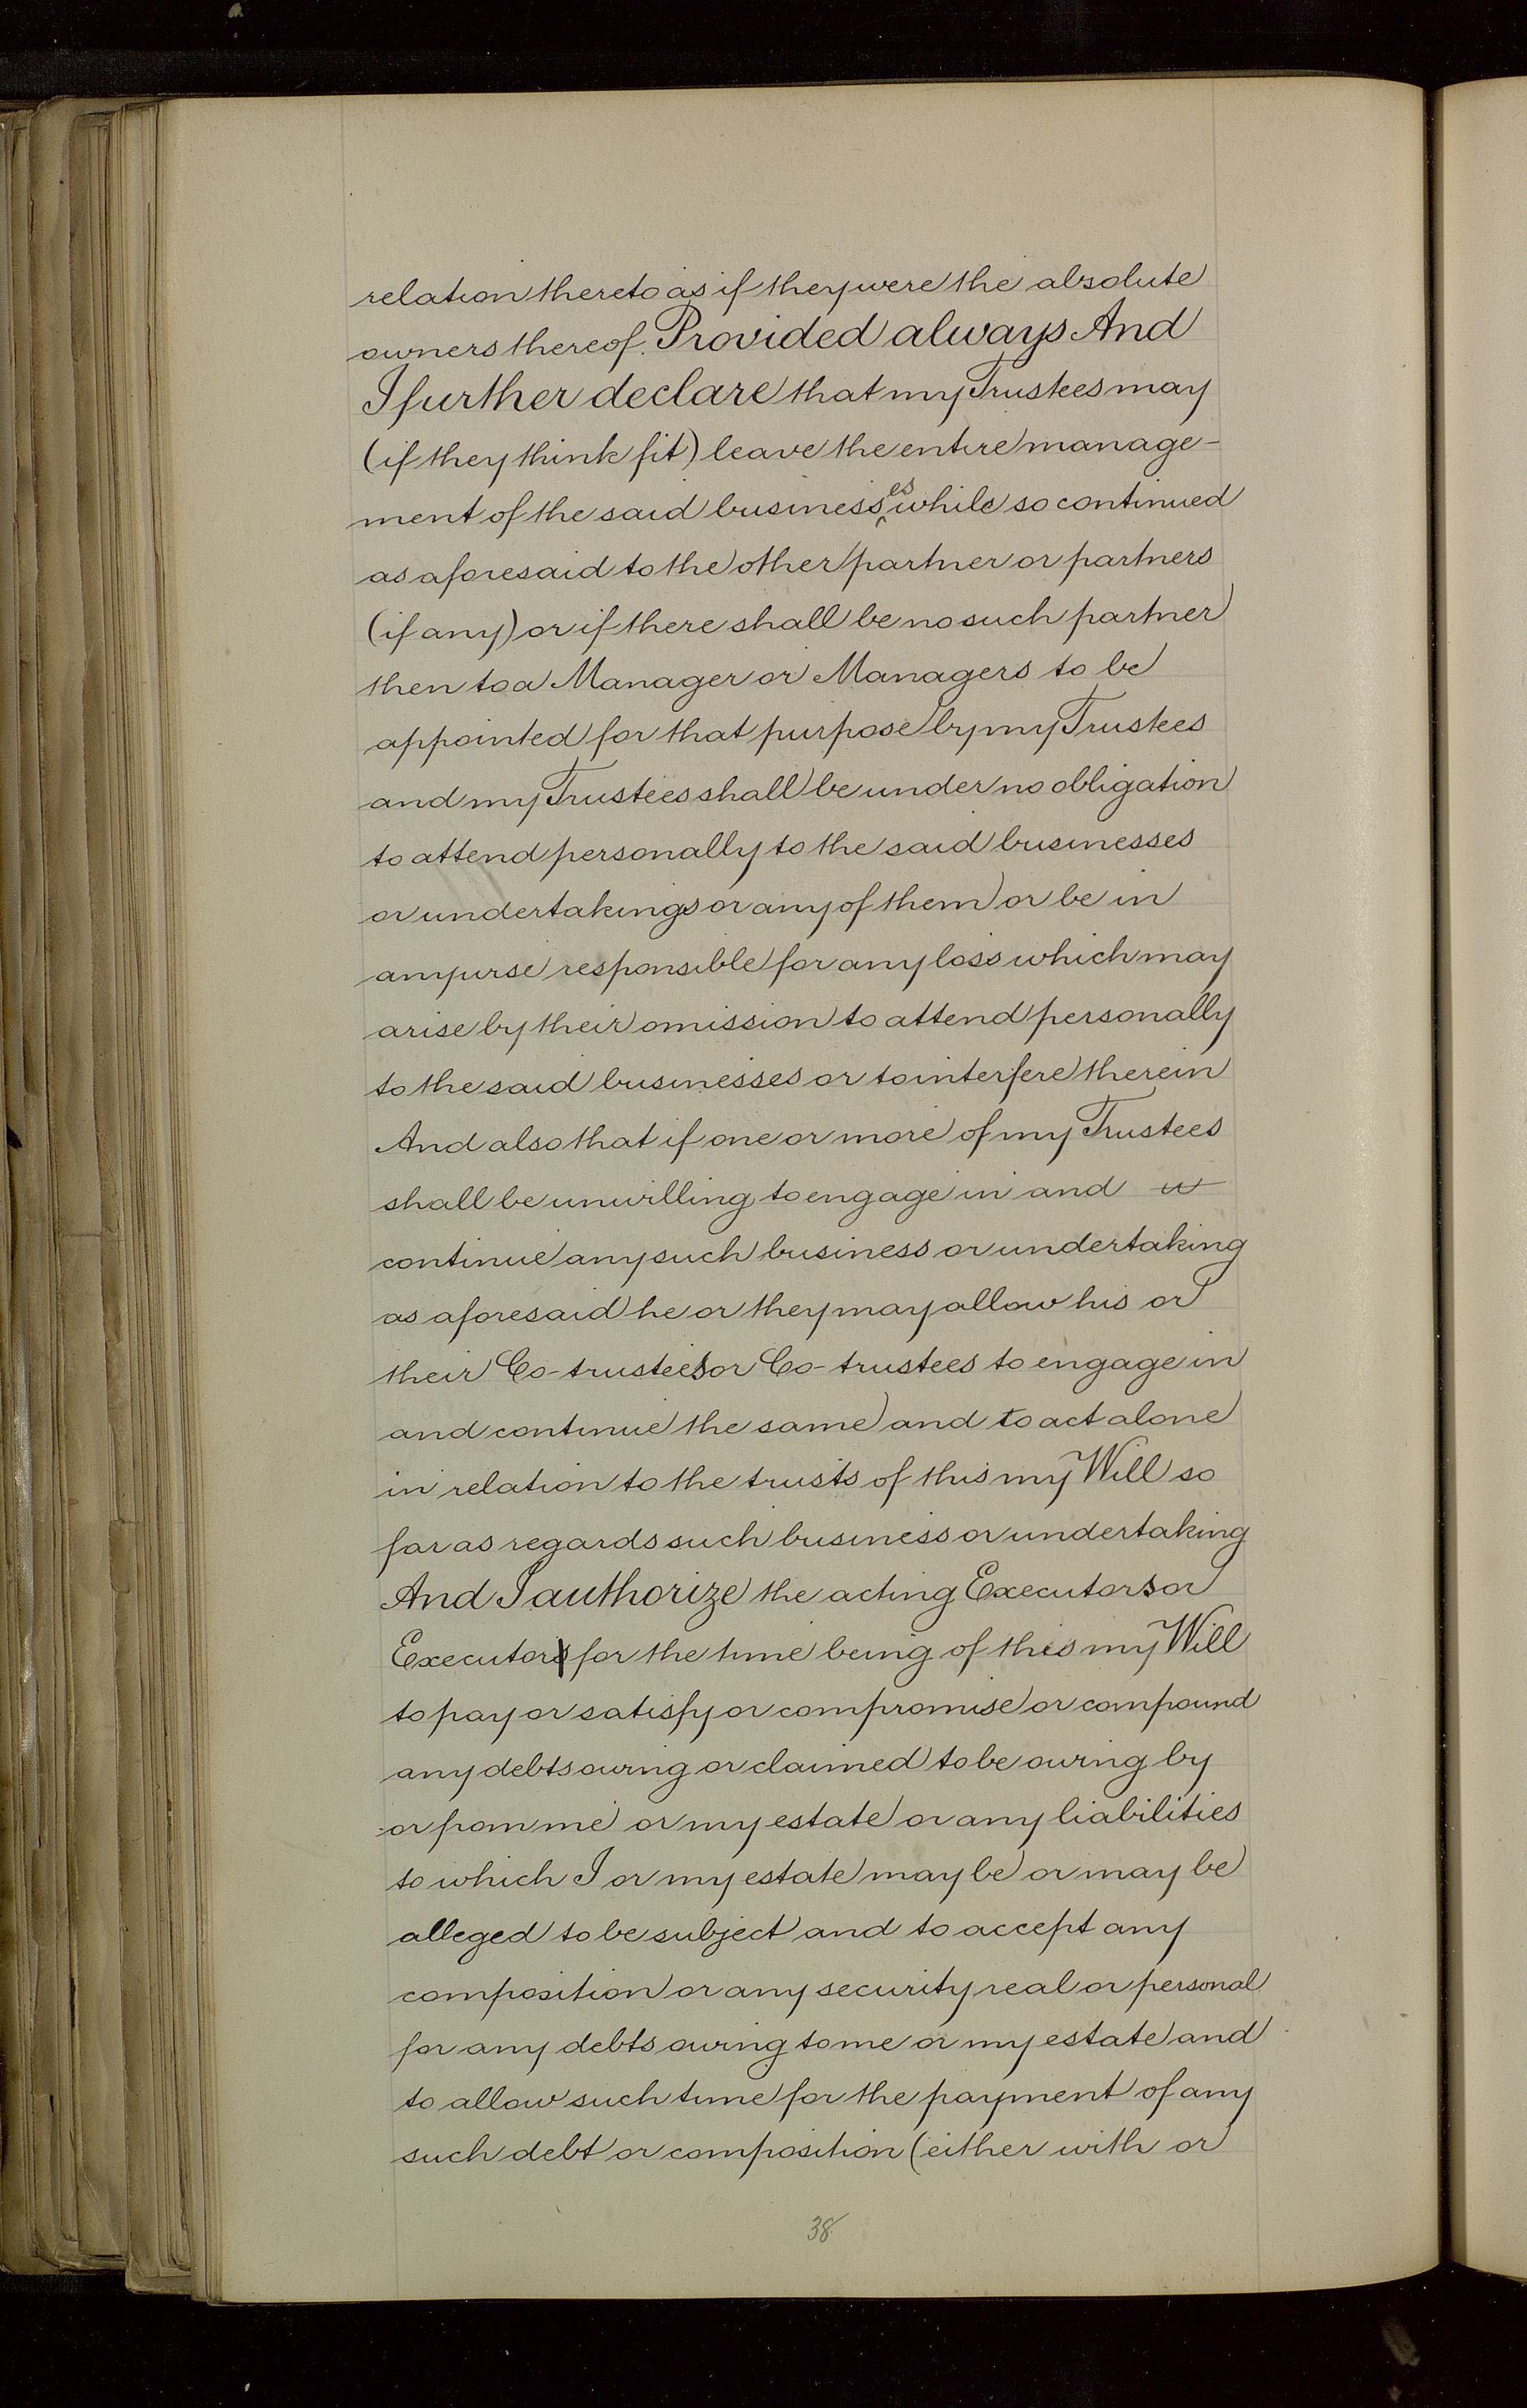 relation thereto as if they were the absolute
owners thereof. Provided always And
I further declare that my Trustees may
(if they think fit) leave the entire manage-
ment of the said businesses while so continued
as aforesaid to the other partner or partners
(if any) or if there shall be no such partner
then to a Manager or Managers to be
appointed for that purpose by my Trustees
and my Trustees shall be under no obligation
to attend personally to the said businesses
or undertakings or any of them or be in
anywise responsible for any loss which may
arise by their omission to attend personally
to the said businesses or to interfere therein
And also that if one or more of my Trustees
shall be unwilling to engage in and
continue any such business or undertaking
as aforesaid he or they may allow his or
their Co-trustees or Co-trustees to engage in
and continue the same and to act alone
in relation to the trusts of this my Will so
far as regards such business or undertaking
And I authorize the acting Executors or
Executor for the time being of this my Will
to pay or satisfy or compromise or compound
any debts owing or claimed to be owing by
or from me or my estate or any liabilities
to which I or my estate may be or may be
alleged to be subject and to accept any
composition or any security real or personal
for any debts owing to me or my estate and
to allow such time for the payment of any
such debt or composition (either with or
38